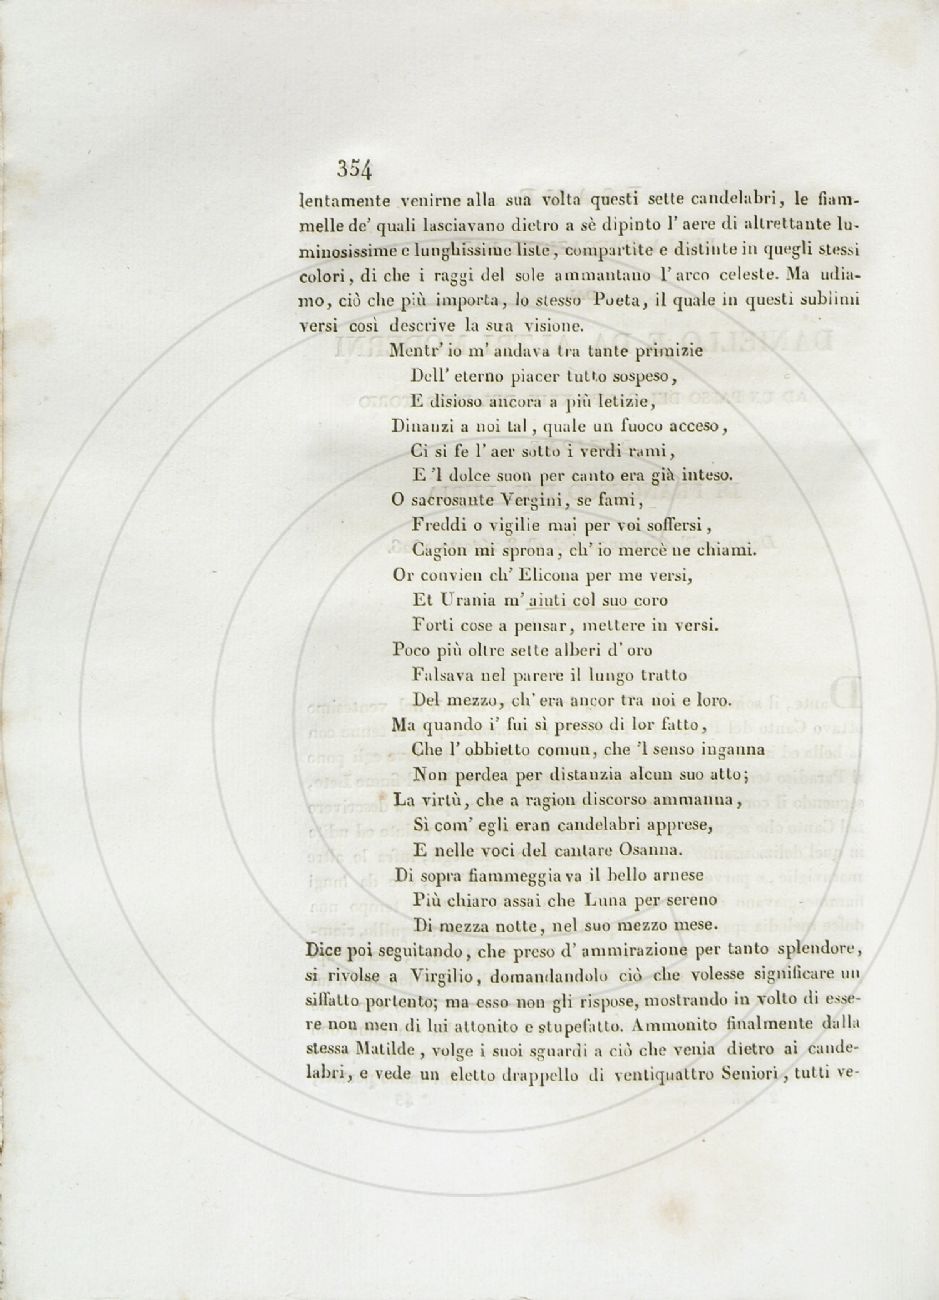 354
lentamente venirne alla sua volta questi sette candelabri, le fiam-
melle de' quali lasciavano dietro a sè dipinto l' aere di altrettante lu-
minosissime e lunghissime liste, compartite e distinte in quegli stessi
colori, di che i raggi del sole ammantano l' arco celeste. Ma udia-
mo, ciò che più importa, lo stesso Poeta, il quale in questi sublimi
versi così descrive la sua visione.
Mentr' io m' andava tra tante primizie
Dell' eterno piacer tutto sospeso,
E disioso ancora a più letizie,
Dinanzi a noi tal, quale un fuoco acceso,
Ci si fe l' aer sotto i verdi rami,
E 'l dolce suon per canto era già inteso.
O sacrosante Vergini, se fami,
Freddi o vigilie mai per voi soffersi,
Cagion mi sprona, ch' io mercè ne chiami.
Or convien ch' Elicona per me versi,
Et Urania m' aiuti col suo coro
Forti cose a pensar, mettere in versi.
Poco più oltre sette alberi d' oro
Falsava nel parere il lungo tratto
Del mezzo, ch' era ancor tra noi e loro.
Ma quando i' fui sì presso di lor fatto,
Che l' obbietto comun, che 'l senso inganna
Non perdea per distanzia alcun suo atto;
La virtù, che a ragion discorso ammanna,
Sì com' egli eran candelabri apprese,
E nelle voci del cantare Osanna.
Di sopra fiammeggiava il bello arnese
Più chiaro assai che Luna per sereno
Di mezza notte, nel suo mezzo mese.
Dice poi seguitando, che preso d' ammirazione per tanto splendore,
si rivolse a Virgilio, domandandolo ciò che volesse significare un
siffatto portento; ma esso non gli rispose, mostrando in volto di esse-
re non men di lui attonito e stupefatto. Ammonito finalmente dalla
stessa Matilde, volge i suoi sguardi a ciò che venia dietro ai cande-
labri, e vede un eletto drappello di ventiquattro Seniori, tutti ve-